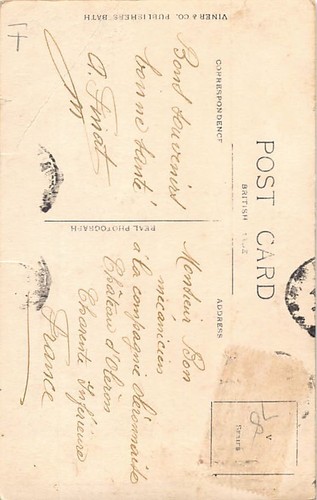 POST CARD
BRITISH MADE
CORRESPONDENCE
ADDRESS
VINER & CO. PUBLISHERS-BATH
REAL PHOTOGRAPH
Bons souvenirs
bonne santé
Monsieur Bon
mécanicien
à la compagnie oléronnaise
Château d'Oléron
Charente Inférieure
France